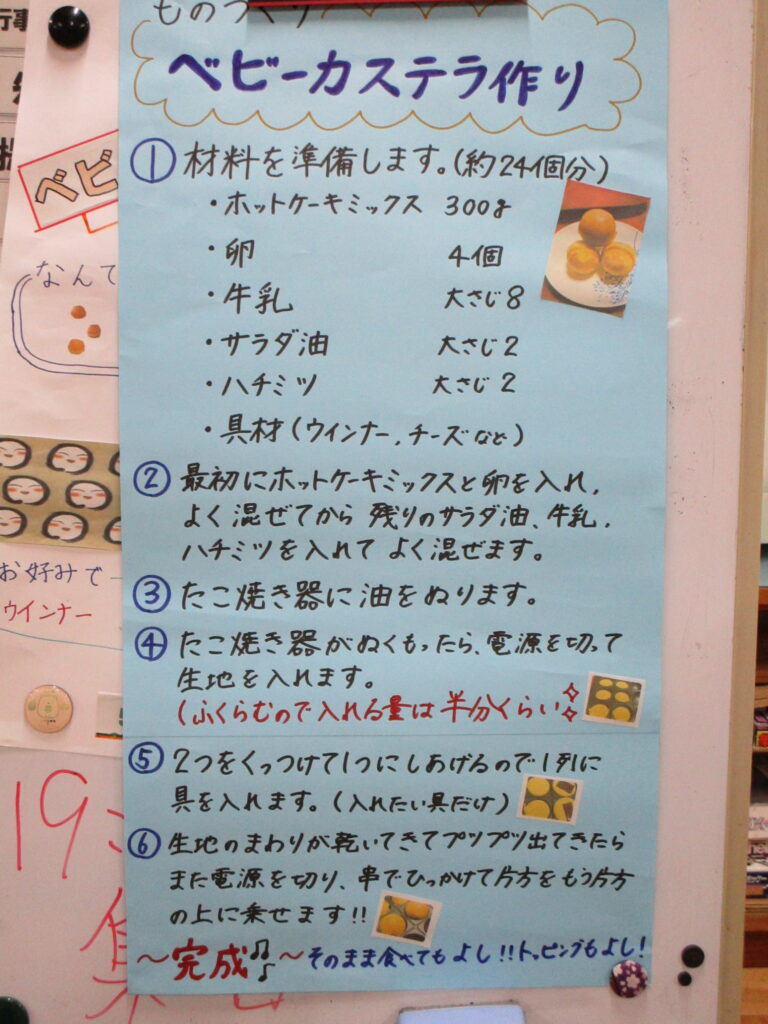 ものづくり
ベビーカステラ作り
① 材料を準備します。(約24個分)
・ホットケーキミックス 300g
・卵 4個
・牛乳 大さじ8
・サラダ油 大さじ2
・ハチミツ 大さじ2
・具材(ウインナー,チーズなど)
② 最初にホットケーキミックスと卵を入れ,
よく混ぜてから残りのサラダ油、牛乳,
ハチミツを入れてよく混ぜます。
③ たこ焼き器に油をぬります。
④ たこ焼き器がぬくもったら、電源を切って
生地を入れます。
(ふくらむので入れる量は半分くらい
⑤ 2つをくっつけて1つにしあげるので1列に
具を入れます。(入れたい具だけ)
⑥ 生地のまわりが乾いてきてプツプツ出てきたら
また電源を切り、串でひっかけて片方をもう片方
の上に乗せます!!
〜完成♫♪〜そのまま食べてもよし!!トッピングもよし!
行事
ベビ
なんて
お好みで
ウインナー
19
集